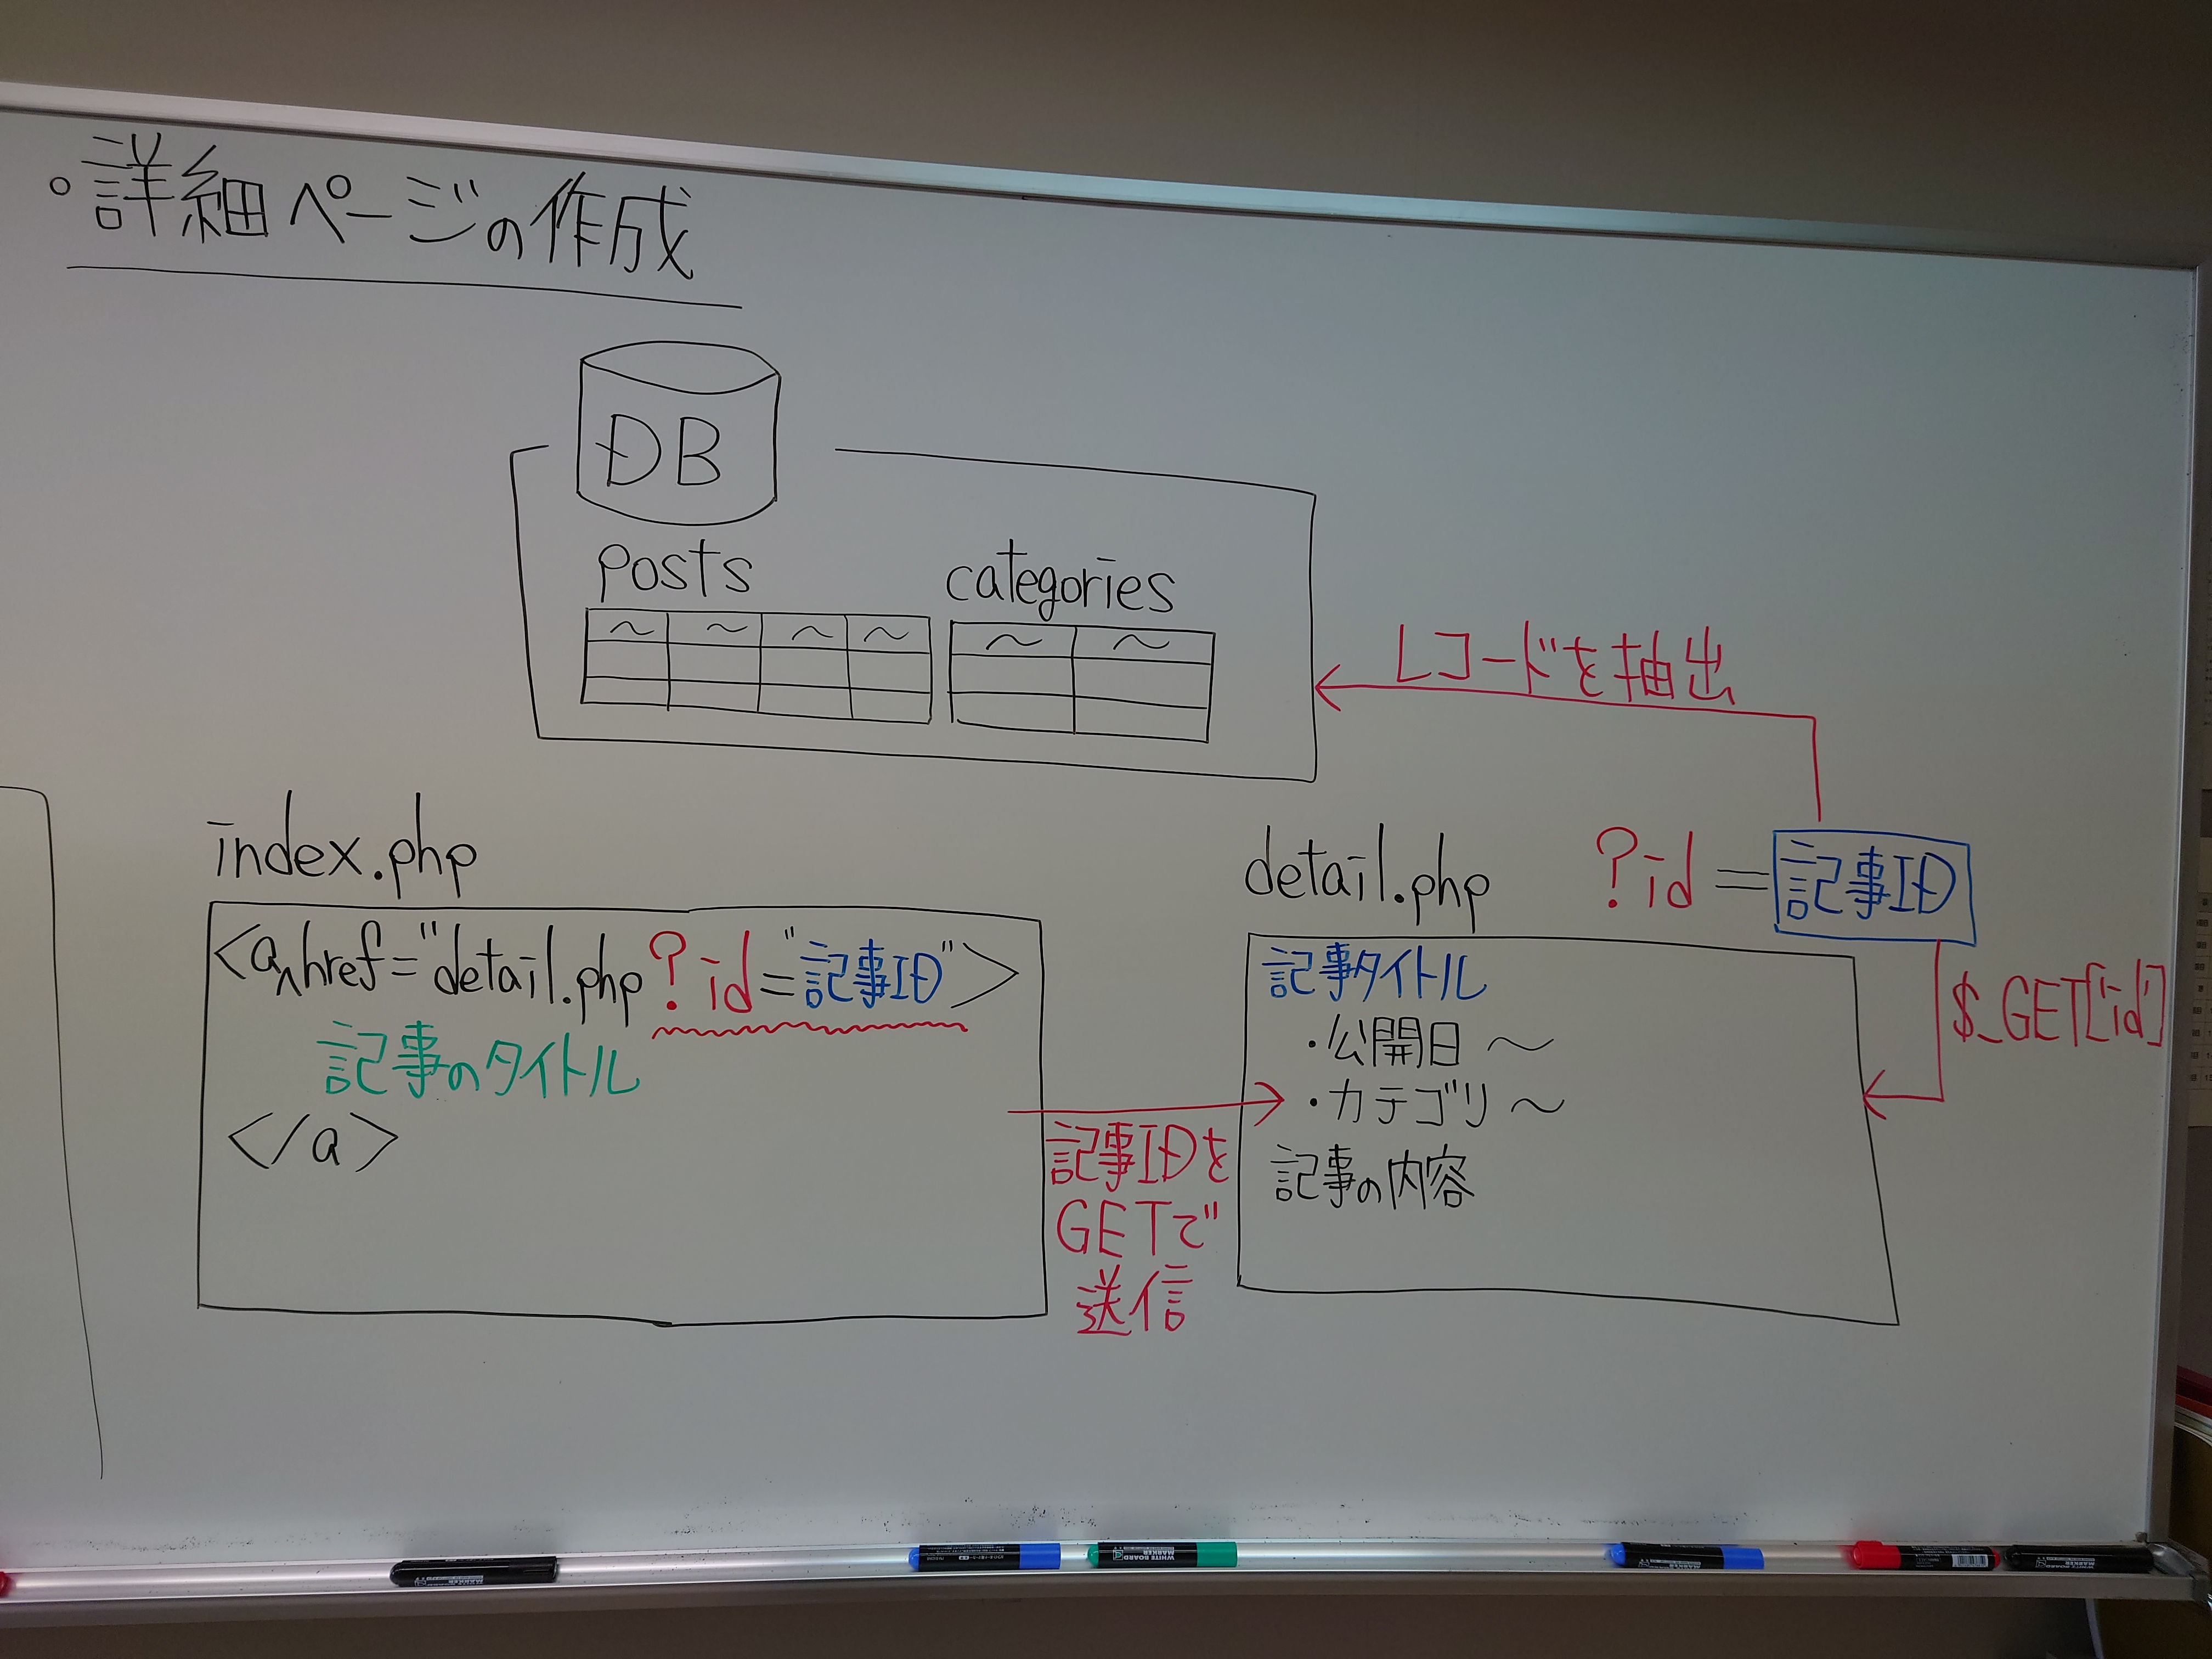 。詳細ページの作成
DB
posts
categories
レコードを抽出
index.php
<a href="detail.php?id="記事ID">
記事のタイトル
</a>
記事IDを
GETで
送信
detail.php ?id=記事ID
$_GET['id']
記事タイトル
・公開日 〜
・カテゴリ 〜
記事の内容
WHITE BOARD
MARKER